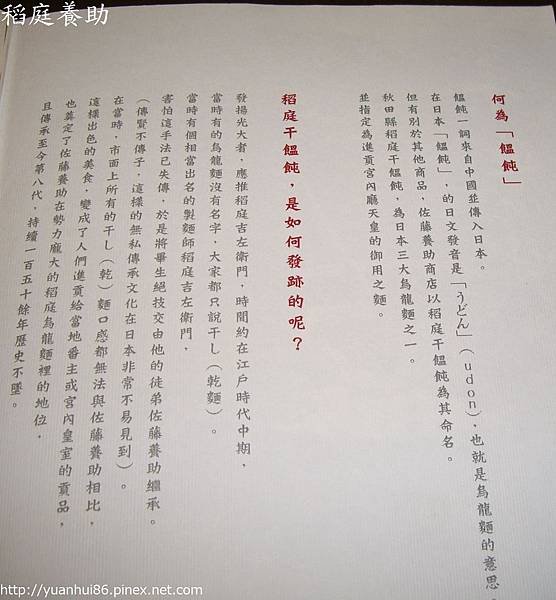 稻庭養助
何為「饂飩」
饂飩一詞來自中國並傳入日本。
在日本「饂飩」，的日文發音是「うどん」(udon)，也就是烏龍麵的意思。
但有別於其他商品，佐藤養助商店以稻庭干饂飩為其命名。
秋田縣稻庭干饂飩，為日本三大烏龍麵之一。
並指定為進貢宮內廳天皇的御用之麵。
稻庭干饂飩，是如何發跡的呢？
發揚光大者，應推稻庭吉左衛門，時間約在江戶時代中期，
當時有的烏龍麵沒有名字，大家都只說干し(乾麵)。
當時有個相當出名的製麵師稻庭吉左衛門，
害怕這手法已失傳，於是將畢生絕技交由他的徒弟佐藤養助繼承。
(傳賢不傳子，這樣的無私傳承文化在日本非常不易見到)。
在當時，市面上所有的干し(乾)麵口感都無法與佐藤養助相比，
這樣出色的美食，變成了人們進貢給當地番主或宮內皇室的貢品，
也奠定了佐藤養助在勢力龐大的稻庭烏龍麵裡的地位，
且傳承至今第八代，持續一百五十餘年歷史不墜。
http://yuanhui86.pinex.net.com